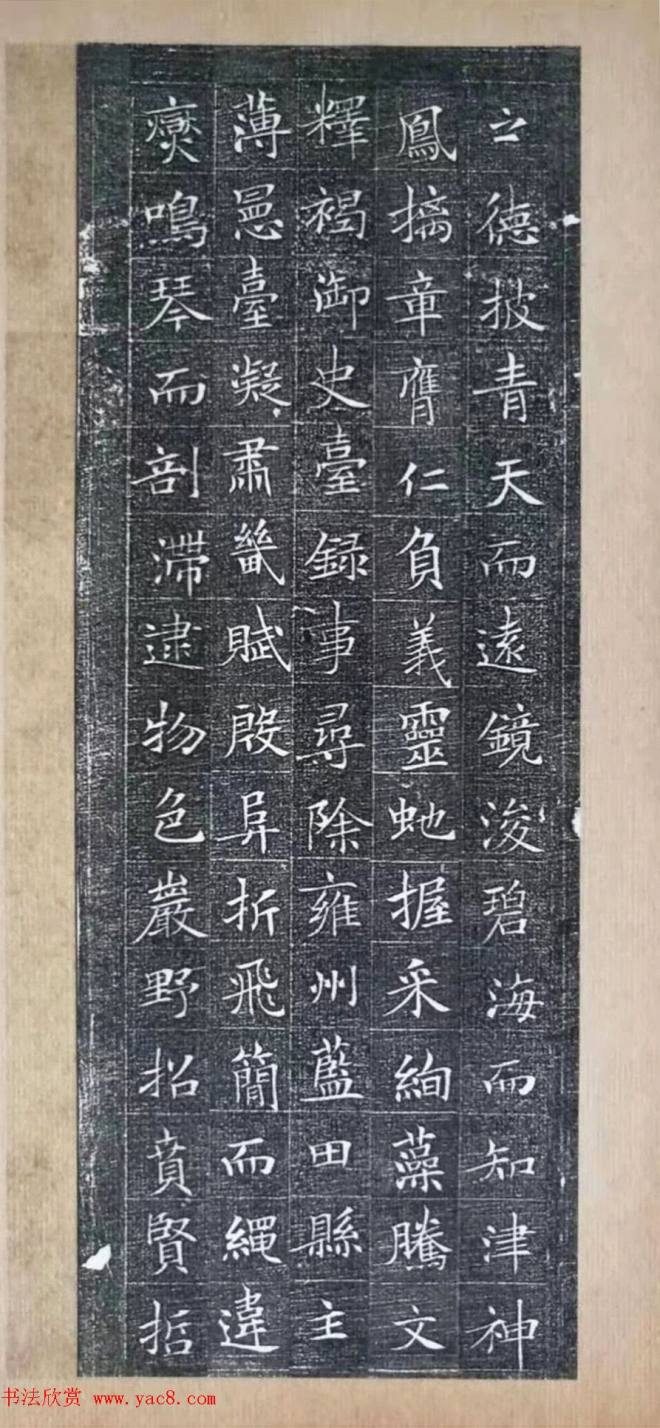 之德披青天而遠鏡浚碧海而知津神
鳳摛章膺仁負義靈虵握采絢藻騰文
釋褐御史臺録事尋除雍州藍田縣主
薄臺凝肅畿賦殷折飛簡而繩違
鳴琴而剖滯逮物色巖野招賁賢哲
书法欣赏 www.yac8.com